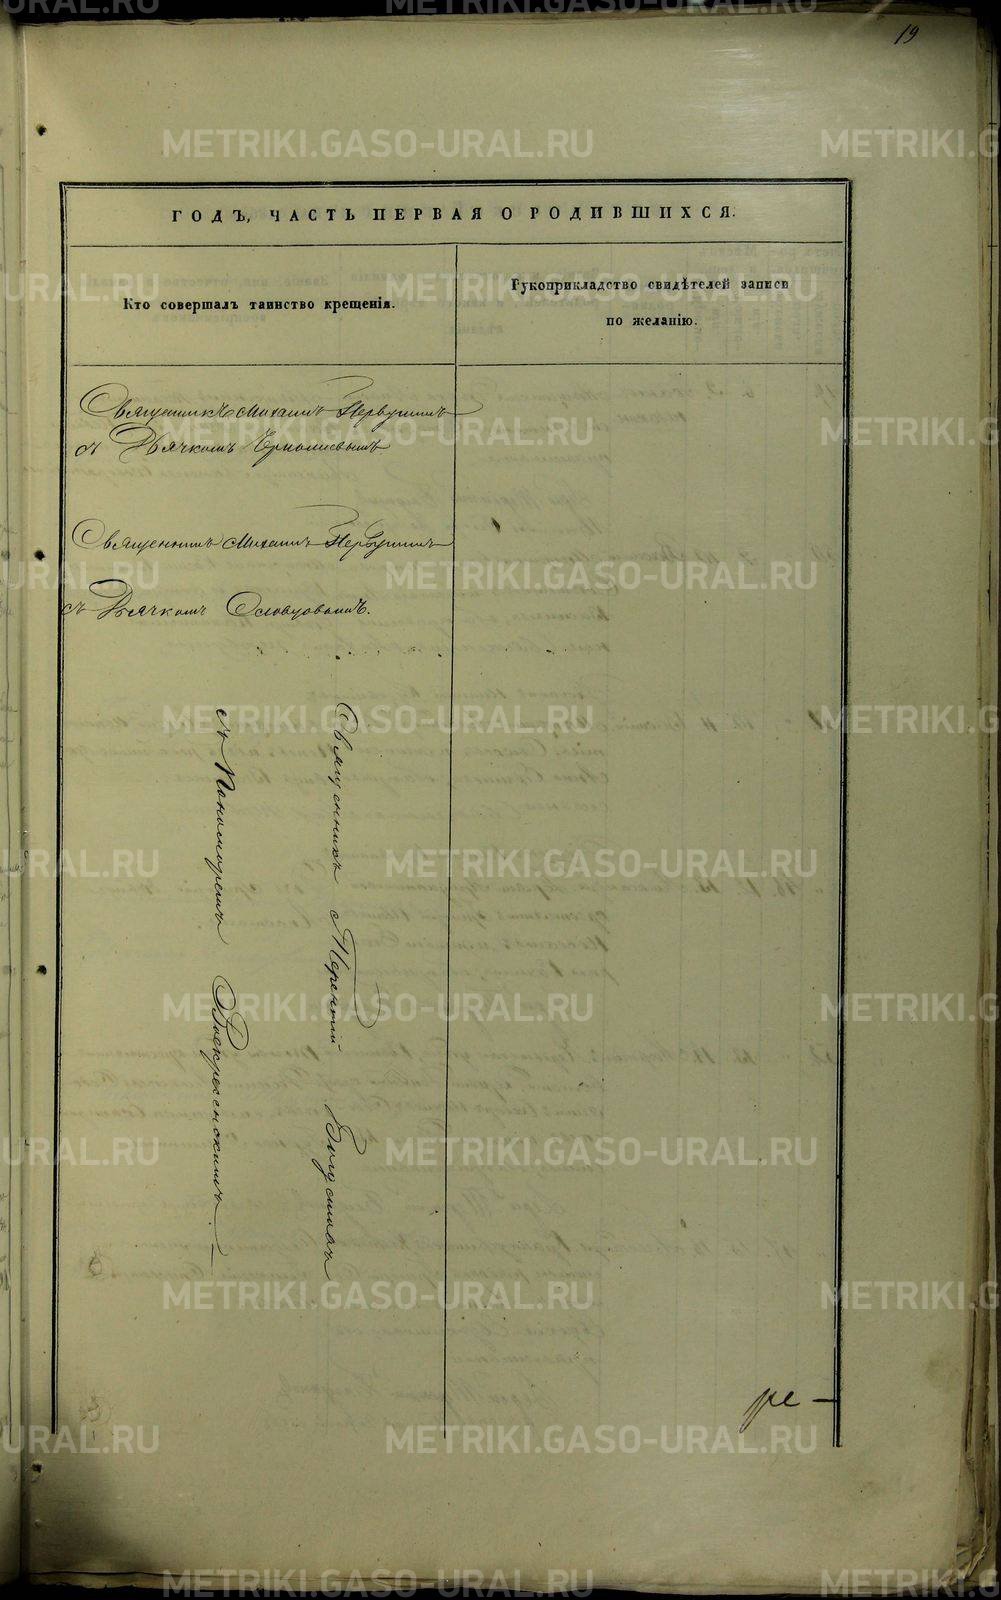 19
ГОДЪ, ЧАСТЬ ПЕРВАЯ О РОДИВШИХСЯ.
Кто совершалъ таинство крещенія.
Рукоприкладство свидѣтелей записи
по желанію.
Священникъ Михаилъ Первушинъ
съ Дьячкомъ Ермолаевымъ
Священникъ Михаилъ Первушинъ
съ Дьячкомъ Словцовымъ.
Священникъ Терентій Богословъ
съ Пономаремъ Воскресенскимъ.
ре -
METRIKI.GASO-URAL.RU